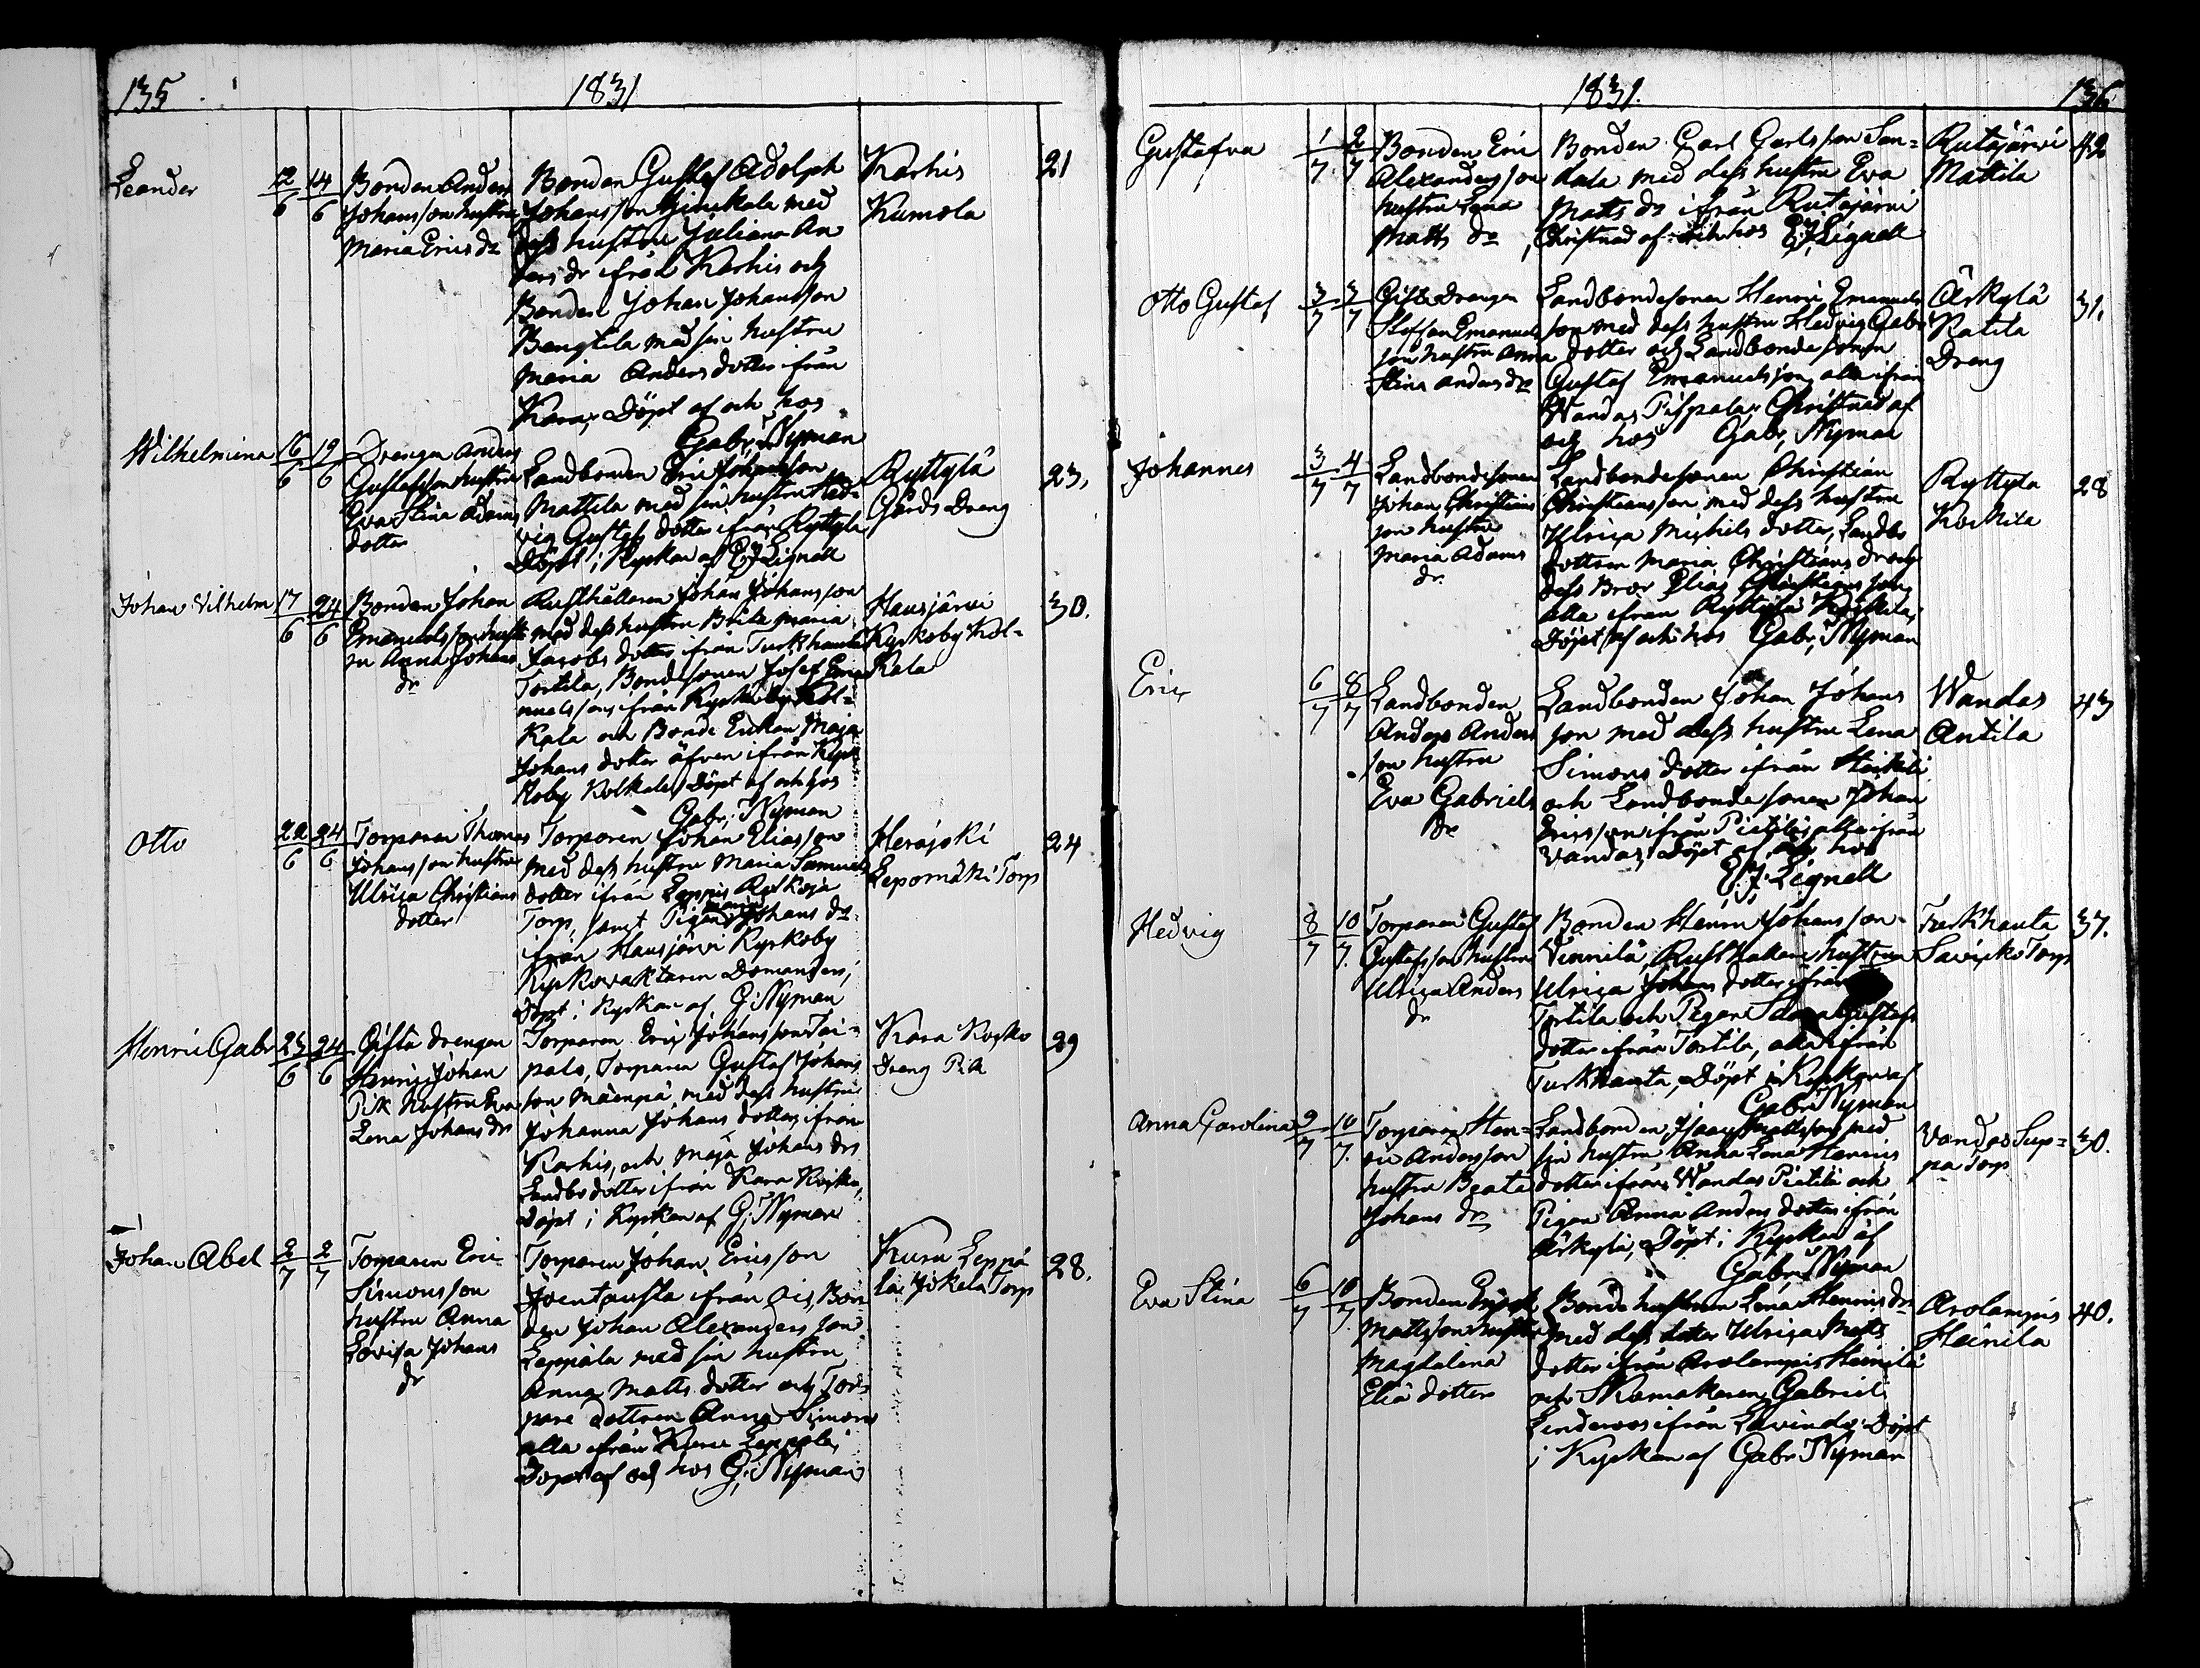 135
1831
Leander
12/6
14/6
Bonden Anders
Johansson hustru
Maria Erics dr
Bonden Gustaf Adolph
Johansson med
dess hustru Juliana An
ders dr ifrån Karhis och
Bonden Johan Johansson
Bengtila med sin hustru
Maria Anders dotter ifrån
Kara, Döpt af och hos
Gabr. Nyman
Karhis
Kumola
21
Wilhelmina
16/6
19/6
Drengen Anders
Gustafsson hustru
Eva Stina Adams
dotter
Landbonden Eric Johansson
Mattila med sin hustru Hed-
vig Gustafs dotter ifrån Ryttylä
Döpt i Kyrkan af E. J. Lignell
Ryttylä
Gårds Dreng
23.
Johan Vilhelm
17/6
24/6
Bonden Johan
Emanuelsson hust
ru Anna Johans
dr
Rusthållaren Johan Johansson
med dess hustru Brita Maria
Jacobs dotter ifrån Turkhauta
Tortila, Bondesonen Josef Ema
nuelsson ifrån Kyrkoby Kol-
kala och Bonde Enkan Maja
Johans dotter äfven ifrån Kyrk
koby Kolkala, Döpt af och hos
Gabr. Nyman
Hausjärvi
Kyrkoby Kol-
kala
30.
Otto
22/6
24/6
Torparen Thomas
Johansson hustru
Ulrica Christians
dotter
Torparen Johan Eliasson
med dess hustru Maria Samuels
dotter ifrån Leppis
Torp, samt Pigan Maria Johans dr
ifrån Hausjärvi Kyrkoby
Kyrkovaktaren
Döpt i Kyrkan af G. Nyman
Herajoki
Lepomäki Torp
24
Henric Gabr
23/6
24/6
Gifta drengen
Henric Johan
Pik hustru Eva
Lena Johans dr
Torparen Eric Johansson Tai-
pale, Torparen Gustaf Johans
son Mäenpä, med dess hustru
Johanna Johans dotter, ifrån
Karhis, och Maja Johans drs
Landbo dotter ifrån Kara Koske,
Döpt i Kyrkan af G. Nyman
Kara Kosko
Dreng Pik
29
Johan Abel
2/7
2/7
Torparen Eric
Simonsson
hustru Anna
Lovisa Johans
dr
Torparen Johan Ericsson
ifrån Ois, Bon
den Johan Alexandersson
Leppälä med sin hustru
Anna Matts dotter och Tor-
pare dottren Anna Simons
alla ifrån Kuru Leppälä,
Döpt af och hos G. Nyman
Kuru Leppä
lä Jokela Torp
28.
1831.
136
Gustafva
1/7
2/7
Bonden Eric
Alexandersson
hustru Lena
Matts dr
Bonden Carl Carlsson San-
dala med dess hustru Eva
Matts dr ifrån Rutajärvi
Christnad af och hos E. J. Lignell
Rutajärvi
Mattila
42
Otto Gustaf
3/7
3/7
Gifte Drengen
Staffan Emanuels
son hustru Anna
Stina Anders dr
Landbondesonen Henric Emanuels
son med dess hustru Hedvig Gabr
dotter och Landbonde sonen
Gustaf Emanuelsson, alla ifrån
Wandas Pispala, Christnad af
och hos Gabr. Nyman
Erkylä
Ratila
Dreng
31.
Johannes
3/7
4/7
Landbondesonen
Johan Christians
son hustru
Maria Adams
dr
Landbondesonen Christian
Christiansson med dess hustru
Ulrica Michels dotter, Landbo
dottren Maria Christians dr och
dess Bror Elias Christiansson
alla ifrån Ryttylä Koskila,
Döpt af och hos Gabr. Nyman
Ryttylä
Koskila
28
Eric
6/7
8/7
Landbonden
Anders Anders
son hustru
Eva Gabriels
dr
Landbonden Johan Johans
son med dess hustru Lena
Simons dotter ifrån Heikilä
och Landbonde sonen Johan
Ericsson ifrån Pietilä, alla ifrån
Vandas, Döpt af och hos
E. J. Lignell
Wandas
Antila
43
Hedvig
8/7
10/7
Torparen Gustaf
Gustafsson hustru
Ulrica Anders
dr
Bonden Henric Johansson
Vennilä, Rusthållare hustrun
Ulrica Johans dotter ifrån
Tortila och Pigan Gustafs
dotter ifrån Tortila, alla ifrån
Turkhauta, Döpt i Kyrkan af
Gabr. Nyman
Turkhauta
Torp
37.
Anna Carolina
9/7
10/7
Torparen Hen-
ric Andersson
hustru Beata
Johans dr
Landbonden Isaac Mattsson med
sin hustru Anna Lena Henrics
dotter ifrån Wandas Pietilä och
Pigan Anna Anders dotter ifrån
Erkylä, Döpt i Kyrkan af
Gabr. Nyman
Vandas Sup-
pa Torp
30.
Eva Stina
6/7
10/7
Bonden
Mattsson hustru
Magdalena
Eliæ dotter
Bonde hustrun Lena Henrics dr
med dess dotter Ulrica Matts
dotter ifrån Arolampis Heinilä
och Skomakaren Gabriel
ifrån Lavinda, Döpt
i Kyrkan af Gabr. Nyman
Arolampis
Heinilä
40.